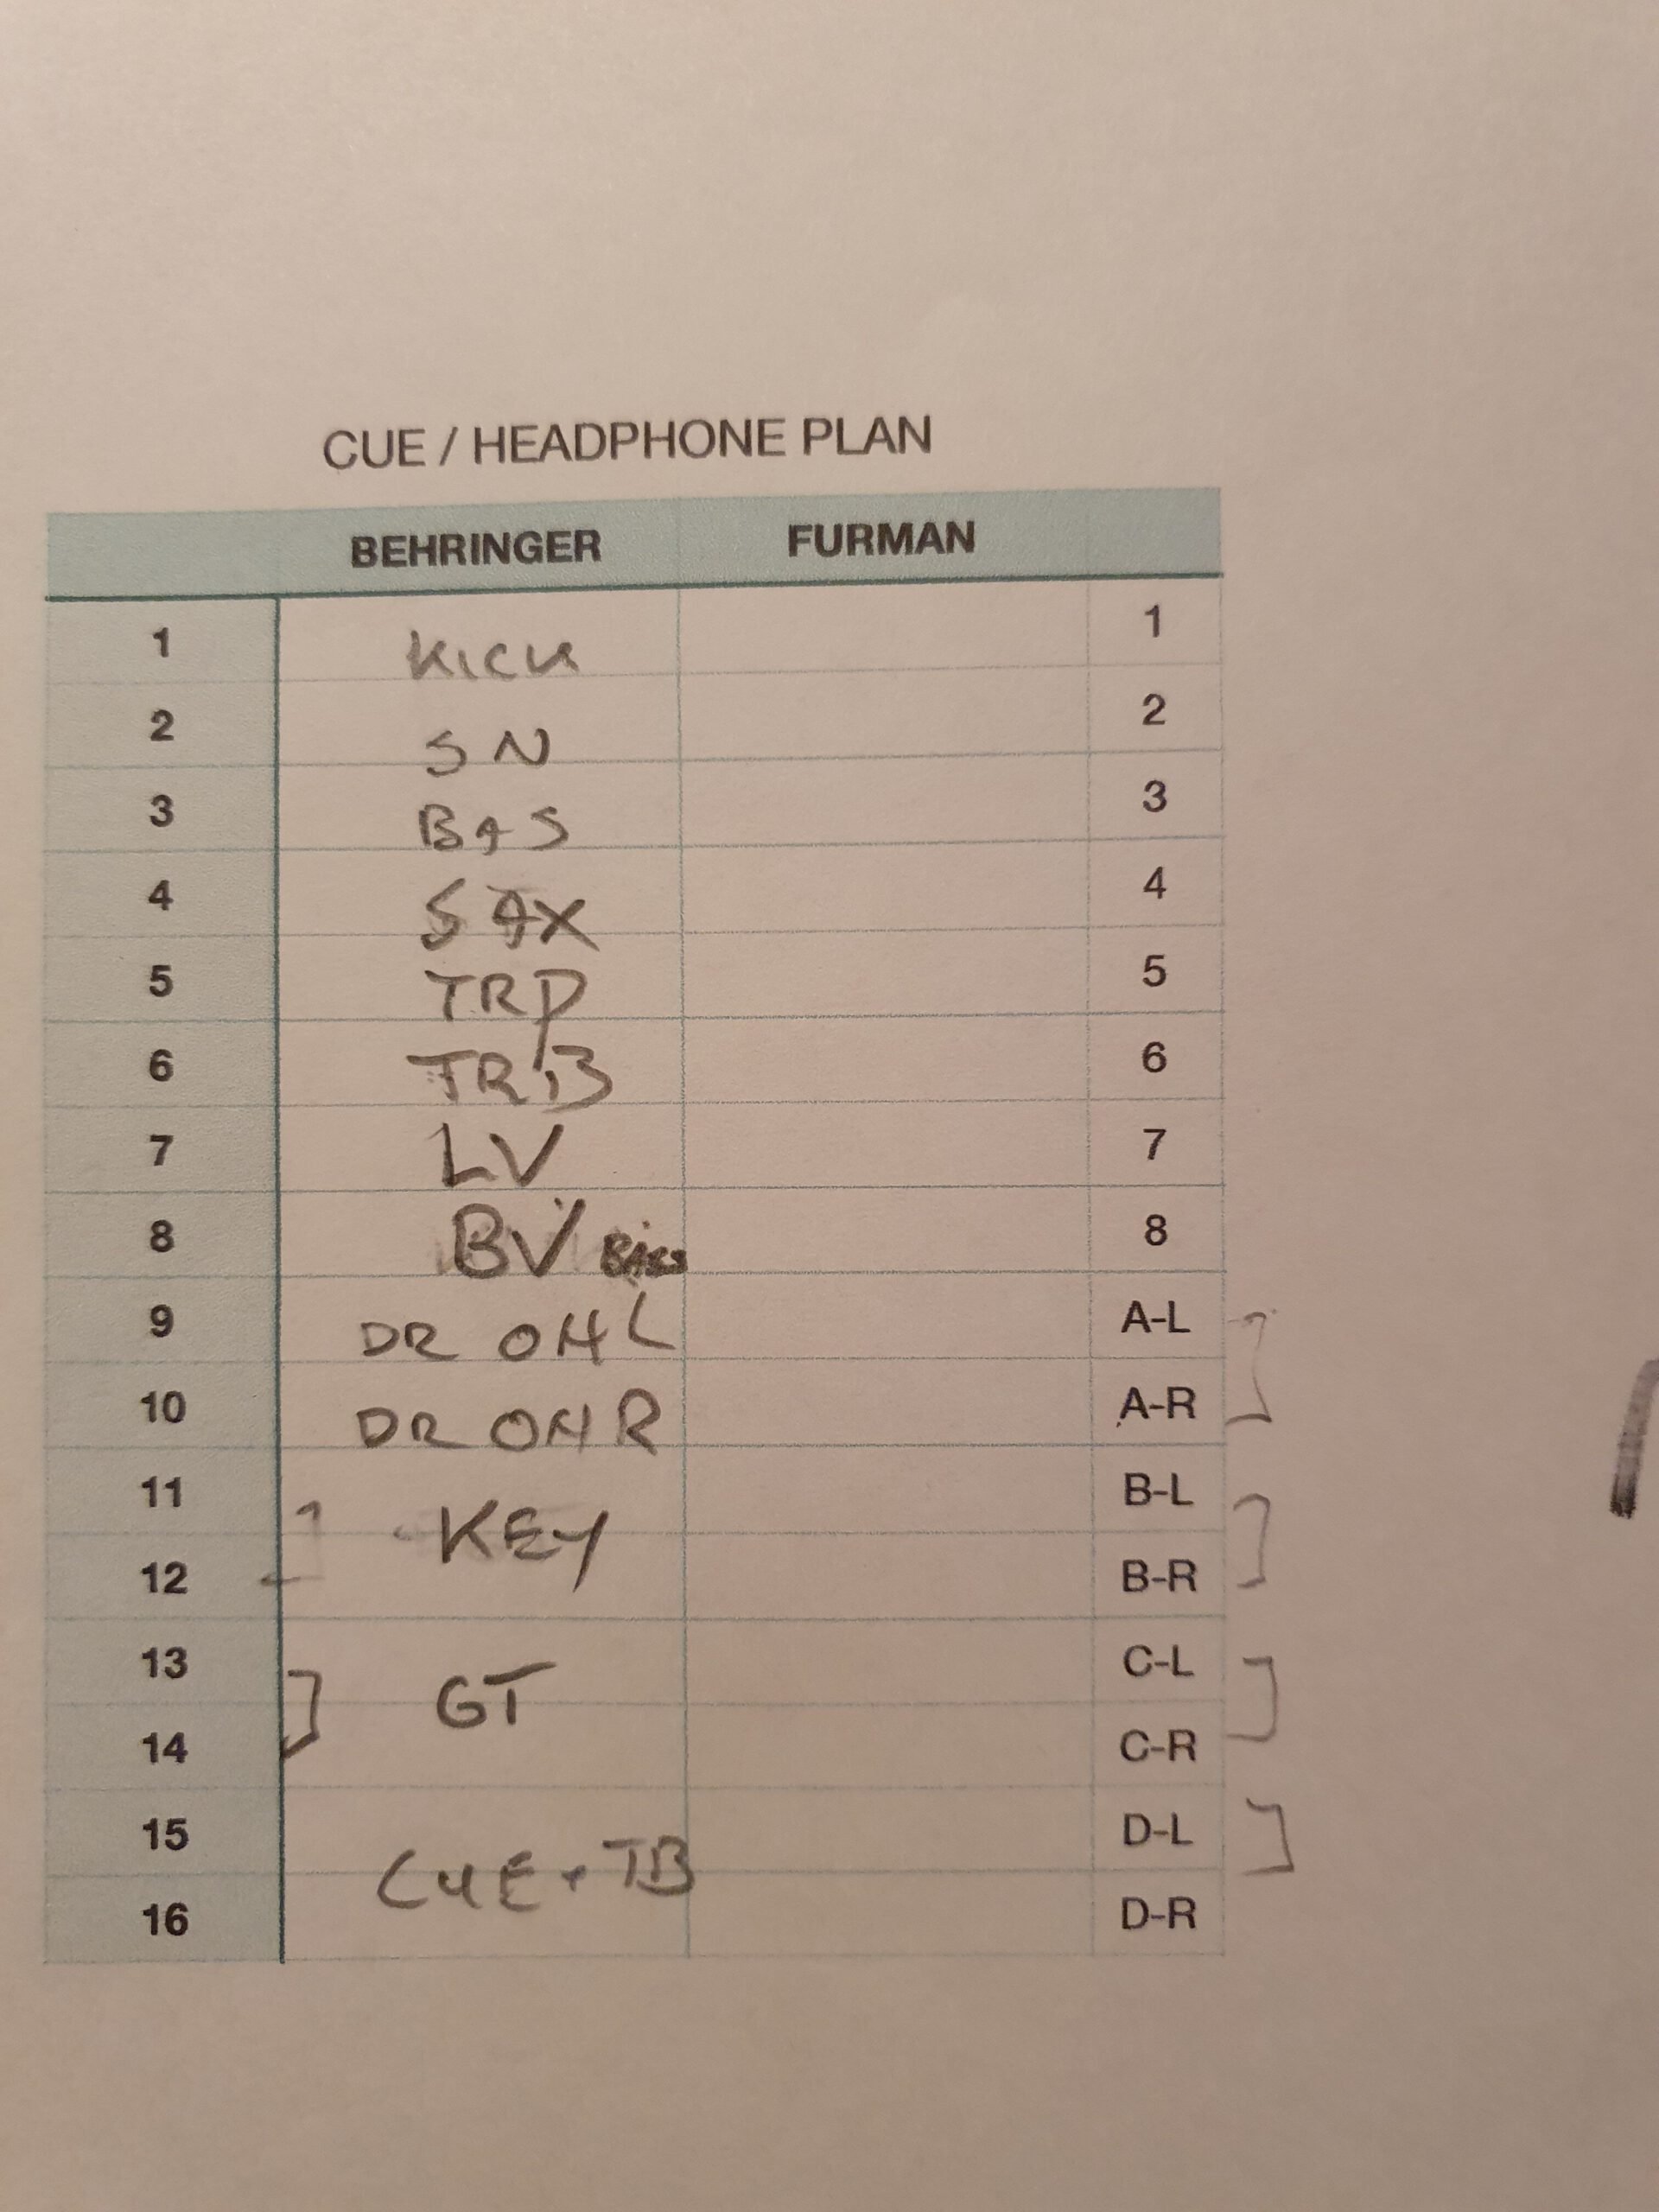 CUE / HEADPHONE PLAN
BEHRINGER FURMAN
1 KICK 1
2 SN 2
3 BAS 3
4 SAX 4
5 TRP 5
6 TRB 6
7 LV 7
8 BV BASS 8
9 DR OH L A-L
10 DR OH R A-R
11 B-L
KEY
12 B-R
13 C-L
GT
14 C-R
15 D-L
CUE + TB
16 D-R